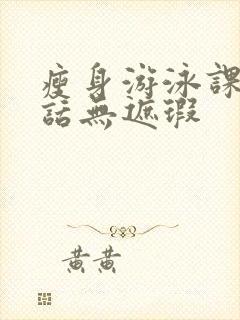 瘦身游泳課
話無遮瑕
黃黃